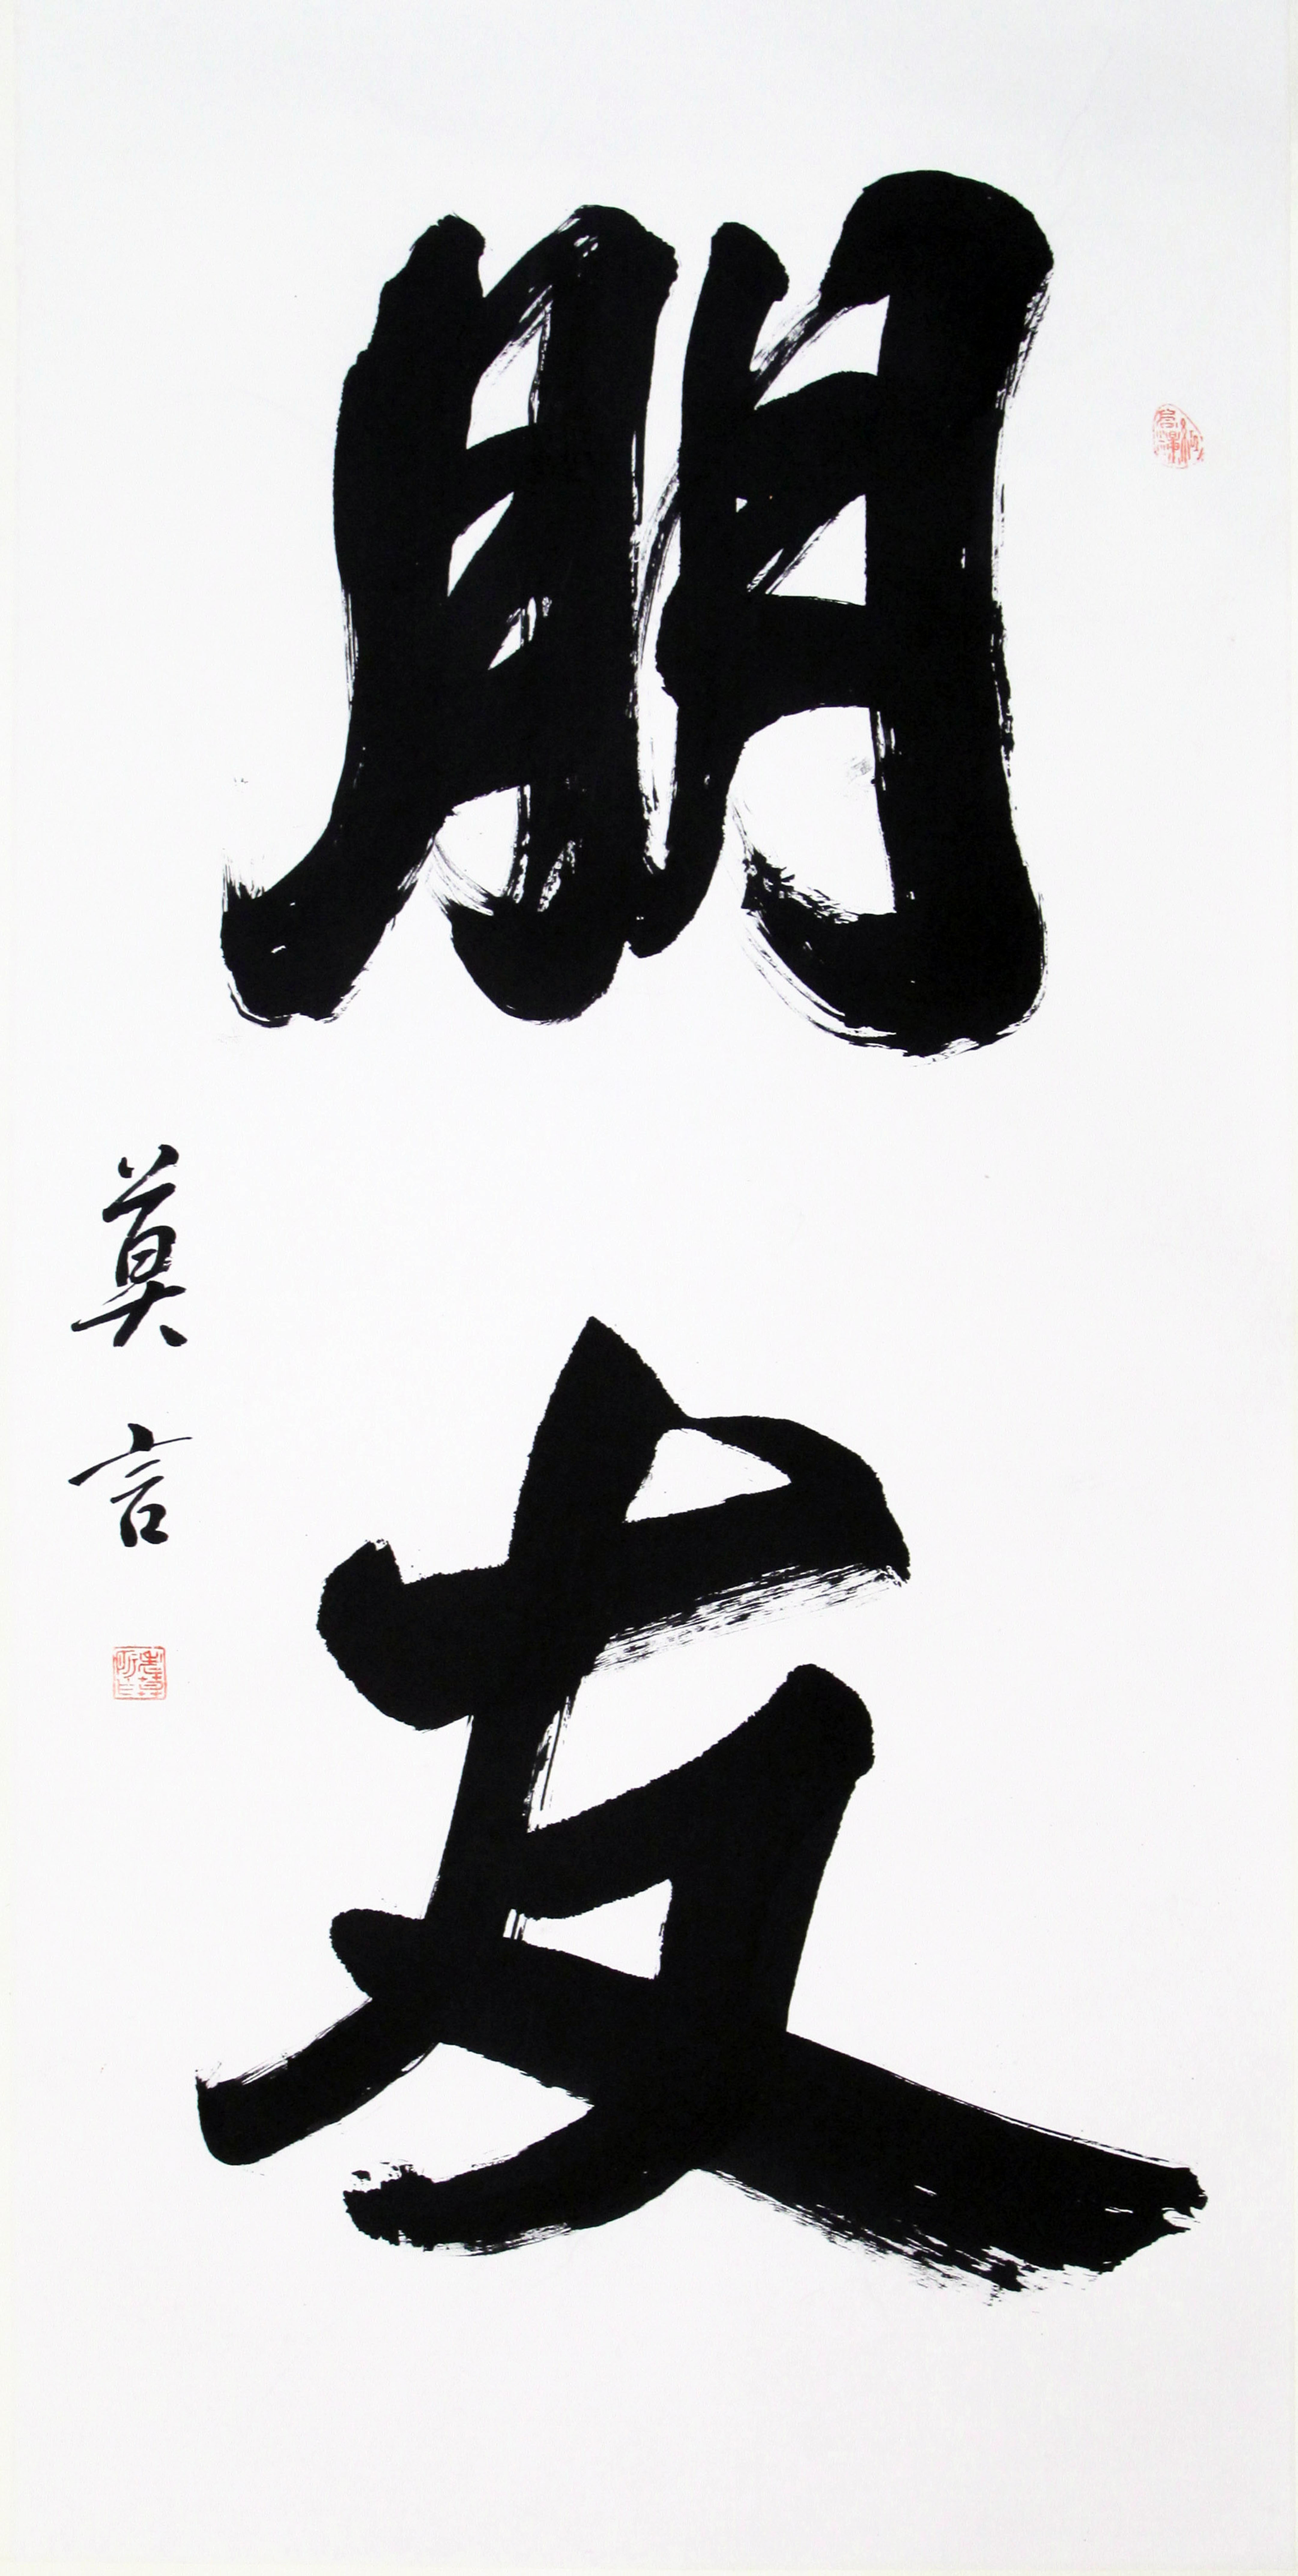 朋友
莫言